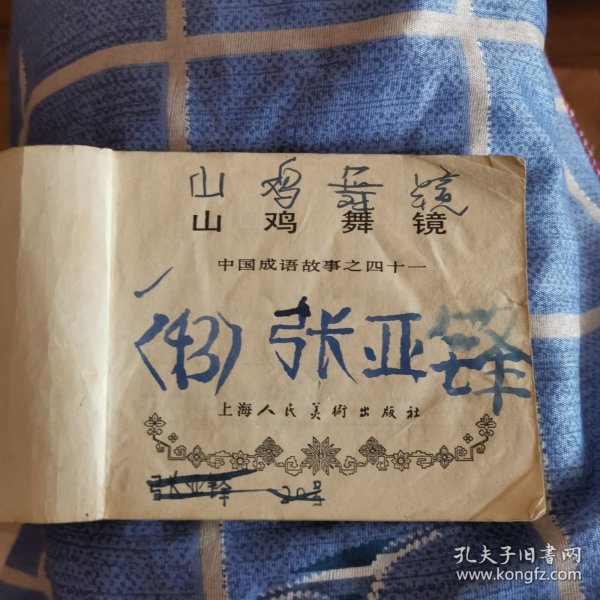 山鸡舞镜
山鸡舞镜
中国成语故事之四十一
(43) 张亚锋
上海人民美術出版社
张亚锋 20号
孔夫子旧书网
www.kongfz.com